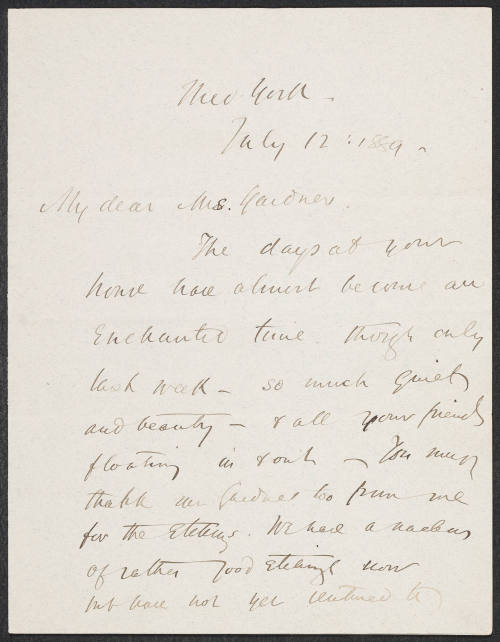 New York -
July 12: 1889 -
My dear Mrs. Gardner.
The days at your
home have almost become an
Enchanted time though only
last week - so much quiet
and beauty - & all your friends
floating in & out - You must
thank Mr Gardner too from me
for the Etchings. We have a nucleus
of rather good Etchings now
but have not yet ventured to